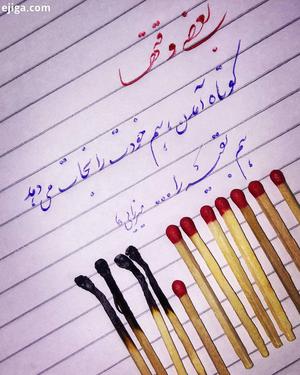 ejiga.com
بعضی وقتها
کوتاه آمدن، هم خودت را نجات می دهد
هم بقیه را....